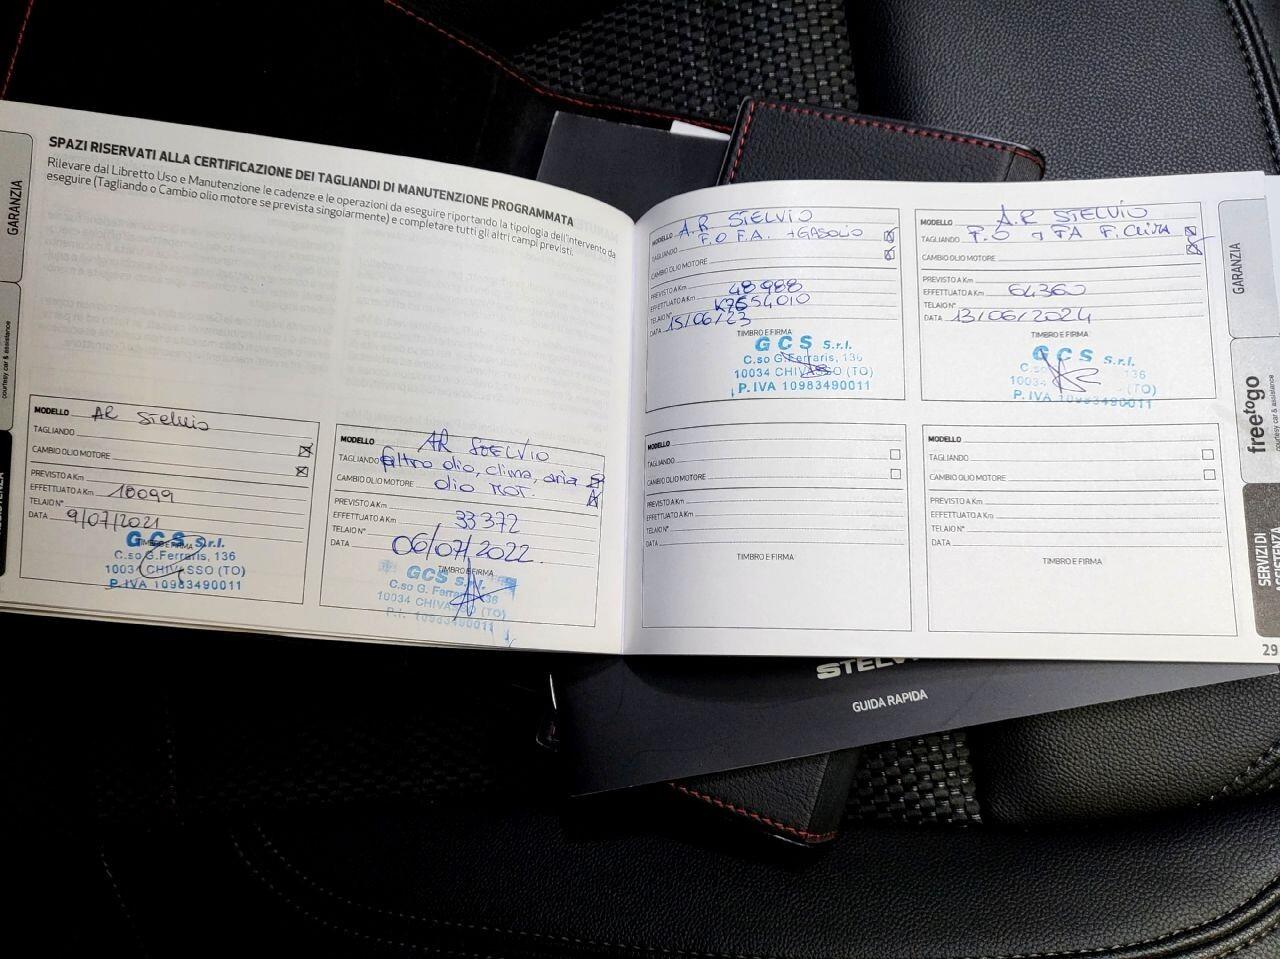 SPAZI RISERVATI ALLA CERTIFICAZIONE DEI TAGLIANDI DI MANUTENZIONE PROGRAMMATA
Rilevare dal Libretto Uso e Manutenzione le cadenze e le operazioni da eseguire riportando la tipologia dell'intervento da
eseguire (Tagliando o Cambio olio motore se prevista singolarmente) e completare tutti gli altri campi previsti.
GARANZIA
courtesy car & assistance
MODELLO AR Stelvio
TAGLIANDO
CAMBIO OLIO MOTORE
PREVISTO A Km
EFFETTUATO A Km 18099
TELAIO N°
DATA 9/07/2021
TIMBRO E FIRMA
GCS S.r.l.
C.so G.Ferraris, 136
10034 CHIVASSO (TO)
P. IVA 10983490011
MODELLO AR STELVIO
TAGLIANDO filtro olio, clima, aria
CAMBIO OLIO MOTORE olio mot.
PREVISTO A Km
EFFETTUATO A Km 33372
TELAIO N°
DATA 06/07/2022.
TIMBRO E FIRMA
GCS S.r.l.
C.so G. Ferraris, 136
10034 CHIVASSO (TO)
P.I. 10983490011
MODELLO A.R STELVIO
TAGLIANDO F.O F.A. +GASOLIO
CAMBIO OLIO MOTORE
PREVISTO A Km
EFFETTUATO A Km 48988
TELAIO N° K7654010
DATA 15/06/23
TIMBRO E FIRMA
GCS S.r.l.
C.so G.Ferraris, 136
10034 CHIVASSO (TO)
P. IVA 10983490011
MODELLO A.R STELVIO
TAGLIANDO F.O + FA F.Clima
CAMBIO OLIO MOTORE
PREVISTO A Km
EFFETTUATO A Km 64360
TELAIO N°
DATA 13/06/2024
TIMBRO E FIRMA
GCS S.r.l.
C.so 136
10034 (TO)
P. IVA 10983490011
MODELLO
TAGLIANDO
CAMBIO OLIO MOTORE
PREVISTO A Km
EFFETTUATO A Km
TELAIO N°
DATA
TIMBRO E FIRMA
MODELLO
TAGLIANDO
CAMBIO OLIO MOTORE
PREVISTO A Km
EFFETTUATO A Km
TELAIO N°
DATA
TIMBRO E FIRMA
GARANZIA
freetogo
courtesy car & assistance
SERVIZI DI
ASSISTENZA
29
GUIDA RAPIDA